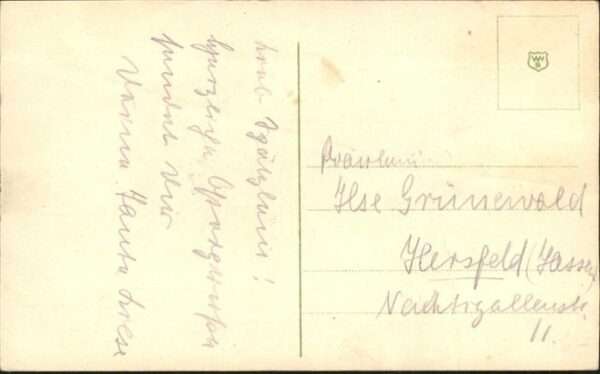 Lieb Ilselein!
herzliche Ostergrüße
sendet Dir
Deine Tante Liese
Fräulein
Ilse Grünewald
Hersfeld (Hessen)
Nachtigallenstr.
11.